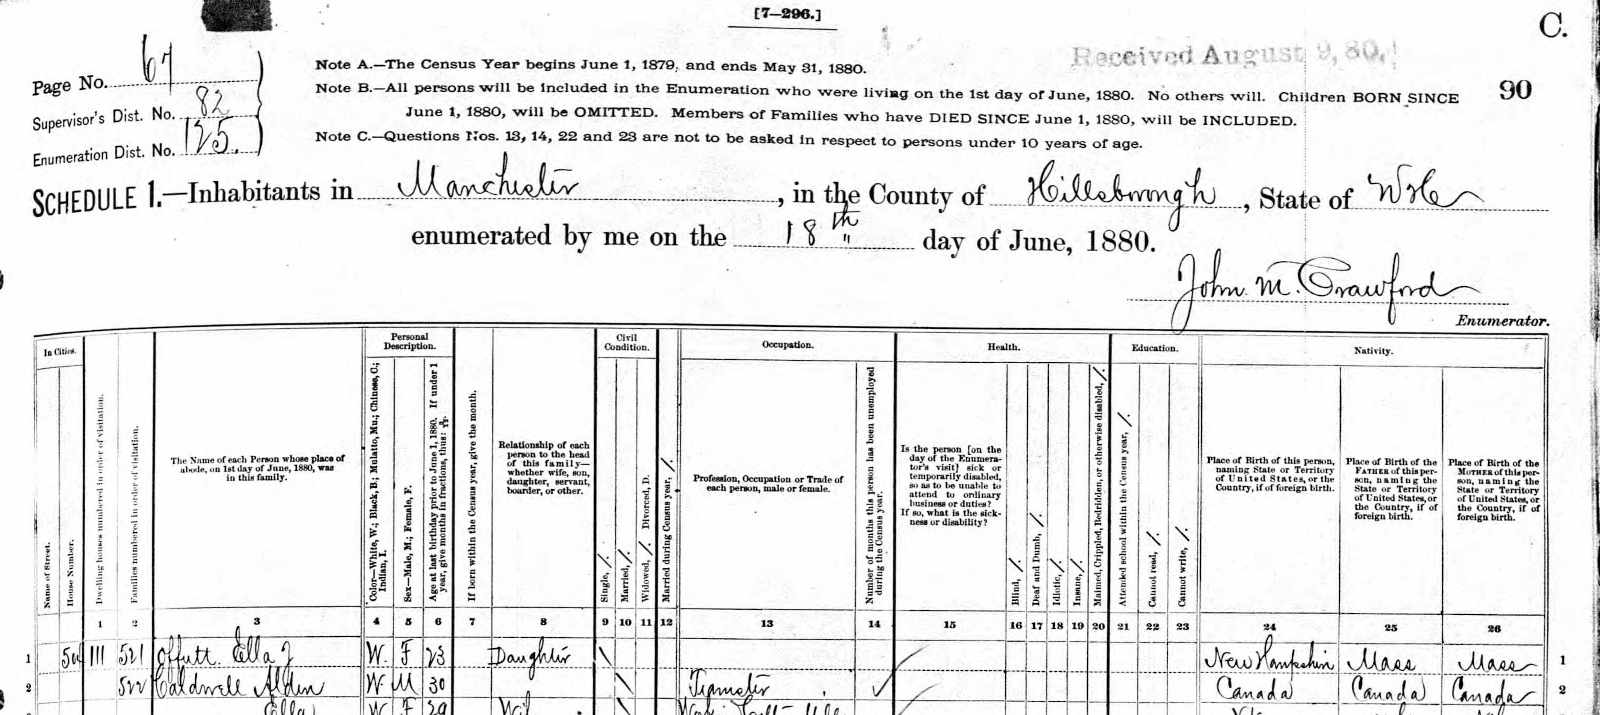 [7—296.]
C.
Received August 9, 80.
Page No. 67
Supervisor's Dist. No. 82
Enumeration Dist. No. 125.
Note A.—The Census Year begins June 1, 1879, and ends May 31, 1880.
Note B.—All persons will be included in the Enumeration who were living on the 1st day of June, 1880. No others will. Children BORN SINCE
June 1, 1880, will be OMITTED. Members of Families who have DIED SINCE June 1, 1880, will be INCLUDED.
Note C.—Questions Nos. 13, 14, 22 and 23 are not to be asked in respect to persons under 10 years of age.
90
SCHEDULE 1.—Inhabitants in Manchester, in the County of Hillsborough, State of
enumerated by me on the 18th day of June, 1880.
John M. Crawford
Enumerator.
In Cities.
Name of Street.
House Number.
Dwelling houses numbered in order of visitation.
Families numbered in order of visitation.
The Name of each Person whose place of
abode, on 1st day of June, 1880, was
in this family.
Personal
Description.
Color—White, W.; Black, B.; Mulatto, Mu.; Chinese, C.;
Indian, I.
Sex—Male, M.; Female, F.
Age at last birthday prior to June 1, 1880. If under 1
year, give months in fractions, thus:
If born within the Census year, give the month.
Relationship of each
person to the head
of this family—
whether wife, son,
daughter, servant,
boarder, or other.
Civil
Condition.
Single, /.
Married, /.
Widowed, /. Divorced, D.
Married during Census year, /.
Occupation.
Profession, Occupation or Trade of
each person, male or female.
Number of months this person has been unemployed
during the Census year.
Health.
Is the person [on the
day of the Enumera-
tor's visit] sick or
temporarily disabled,
so as to be unable to
attend to ordinary
business or duties?
If so, what is the sick-
ness or disability?
Blind, /.
Deaf and Dumb, /.
Idiotic, /.
Insane, /.
Maimed, Crippled, Bedridden, or otherwise disabled, /.
Education.
Attended school within the Census year, /.
Cannot read, /.
Cannot write, /.
Nativity.
Place of Birth of this person,
naming State or Territory
of United States, or the
Country, if of foreign birth.
Place of Birth of the
FATHER of this per-
son, naming the
State or Territory
of United States, or
the Country, if of
foreign birth.
Place of Birth of the
MOTHER of this per-
son, naming the
State or Territory
of United States, or
the Country, if of
foreign birth.
1 2 3 4 5 6 7 8 9 10 11 12 13 14 15 16 17 18 19 20 21 22 23 24 25 26
1 111 521 Offutt Ella J W. F 23 Daughter New Hampshire Mass Mass 1
2 522 Caldwell Alden W M 30 Teamster Canada Canada Canada 2
Ella W F 29